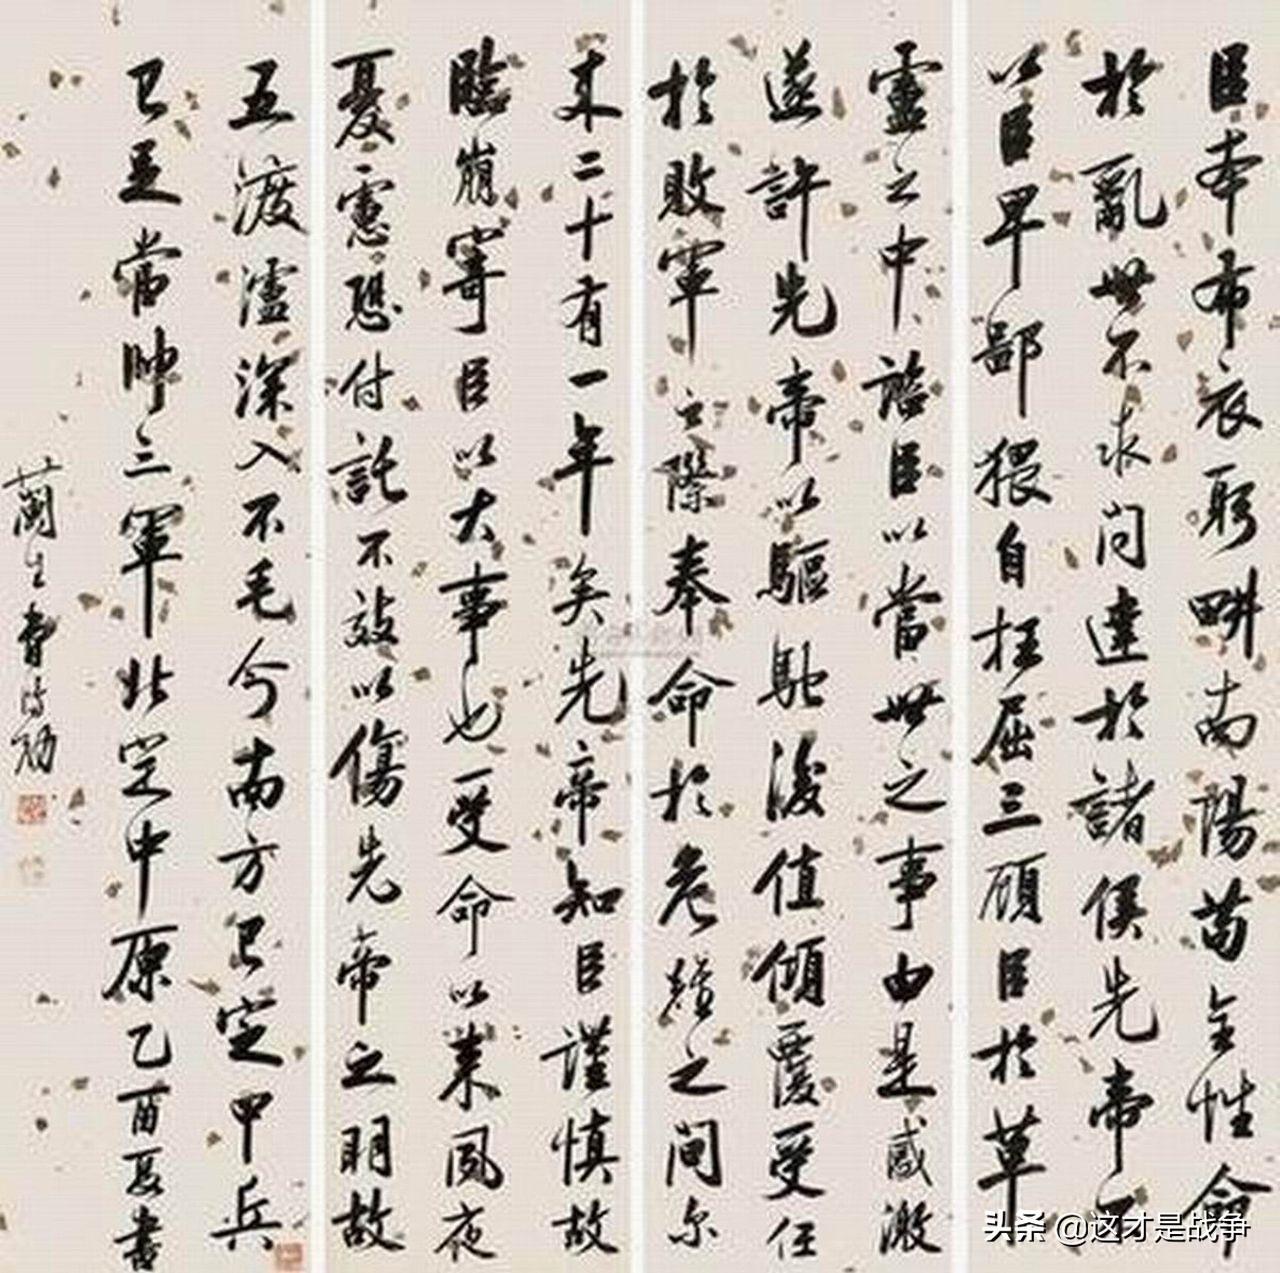 臣本布衣躬畊南陽苟全性命
於亂世不求问達於諸侯先帝不
以臣卑鄙猥自枉屈三顾臣於草
廬之中諮臣以當世之事由是感激
遂許先帝以驅馳後值傾覆受任
於敗軍之際奉命於危難之间尔
来二十有一年矣先帝知臣謹慎故
臨崩寄臣以大事也受命以来夙夜
憂慮恐付託不效以傷先帝之明故
五渡瀘深入不毛今南方已定甲兵
已足當帅三軍北定中原乙酉夏書
蘭生
头条 @这才是战争